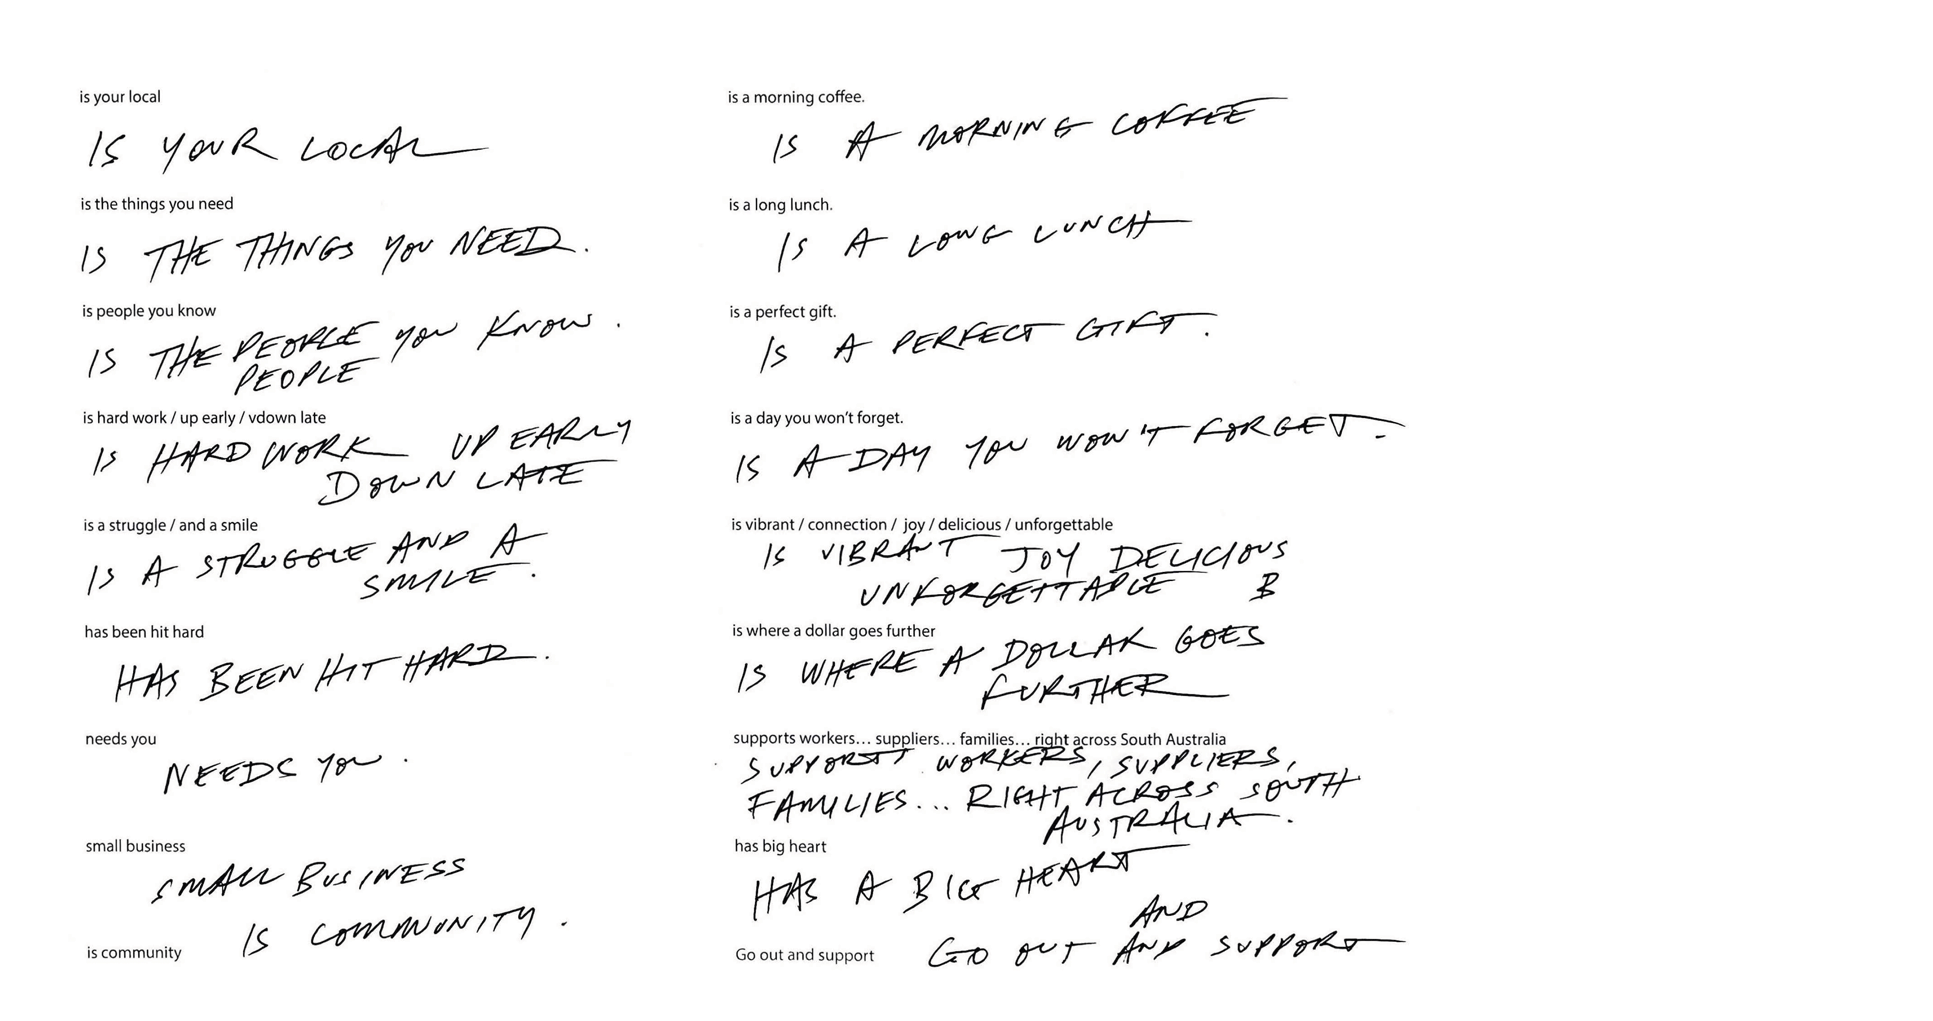 is your local
IS YOUR LOCAL
is the things you need
IS THE THINGS YOU NEED.
is people you know
IS THE PEOPLE YOU KNOW.
PEOPLE
is hard work / up early / vdown late
IS HARD WORK UP EARLY
DOWN LATE
is a struggle / and a smile
IS A STRUGGLE AND A
SMILE.
has been hit hard
HAS BEEN HIT HARD.
needs you
NEEDS YOU.
small business
SMALL BUSINESS
IS COMMUNITY.
is community
is a morning coffee.
IS A MORNING COFFEE
is a long lunch.
IS A LONG LUNCH
is a perfect gift.
IS A PERFECT GIFT.
is a day you won't forget.
IS A DAY YOU WON'T FORGET.
is vibrant / connection / joy / delicious / unforgettable
IS VIBRANT JOY DELICIOUS
UNFORGETTABLE B
is where a dollar goes further
IS WHERE A DOLLAR GOES
FURTHER
supports workers... suppliers... families... right across South Australia
SUPPORTT WORKERS, SUPPLIERS,
FAMILIES... RIGHT ACROSS SOUTH
AUSTRALIA.
has big heart
HAS A BIG HEART
AND
Go out and support
GO OUT AND SUPPORT